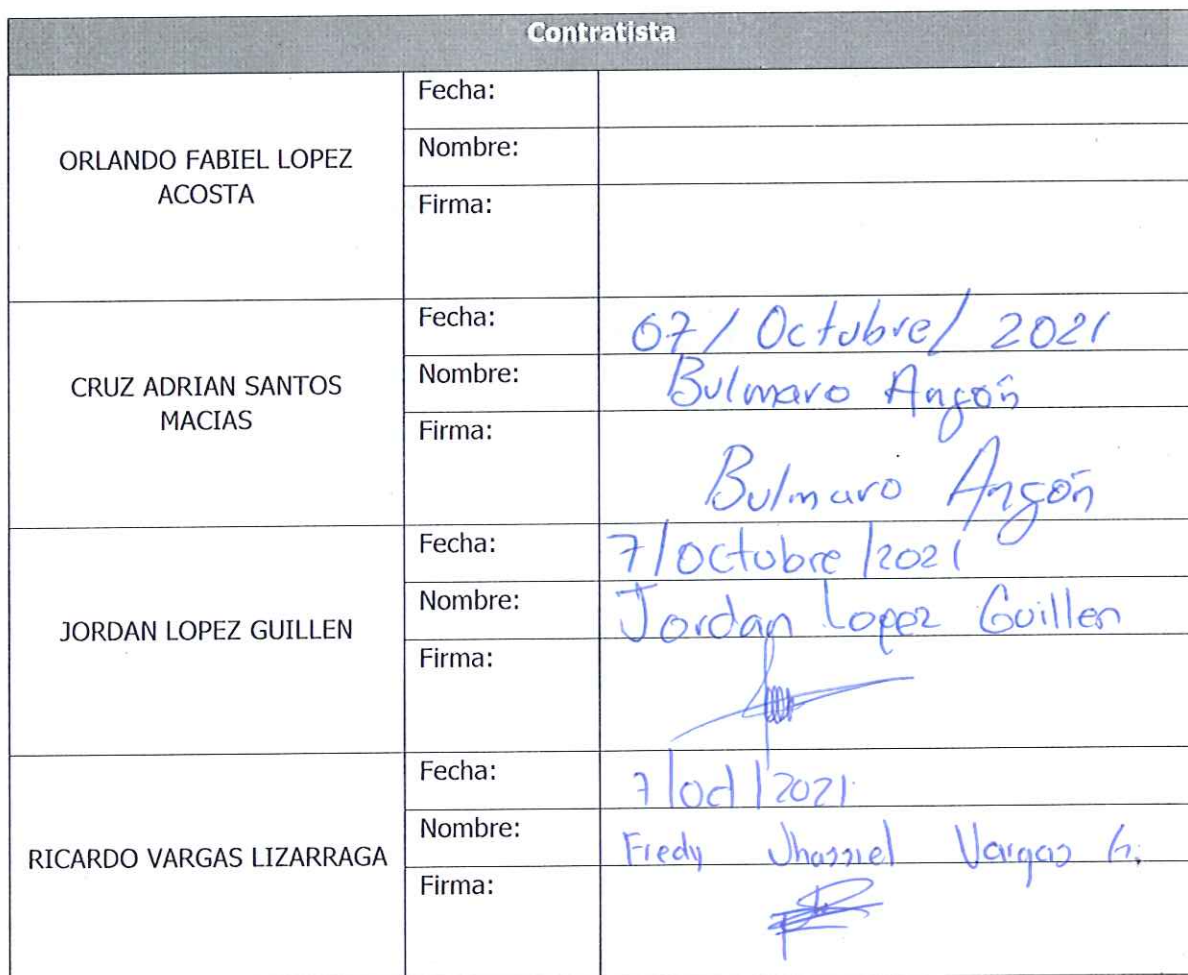 Contratista
ORLANDO FABIEL LOPEZ
ACOSTA
Fecha:
Nombre:
Firma:
CRUZ ADRIAN SANTOS
MACIAS
Fecha: 07/Octubre/2021
Nombre: Bulmaro Angón
Firma: Bulmaro Angón
JORDAN LOPEZ GUILLEN
Fecha: 7/Octubre/2021
Nombre: Jordan Lopez Guillen
Firma:
RICARDO VARGAS LIZARRAGA
Fecha: 7/oct/2021
Nombre: Fredy Jhassiel Vargas G.
Firma: